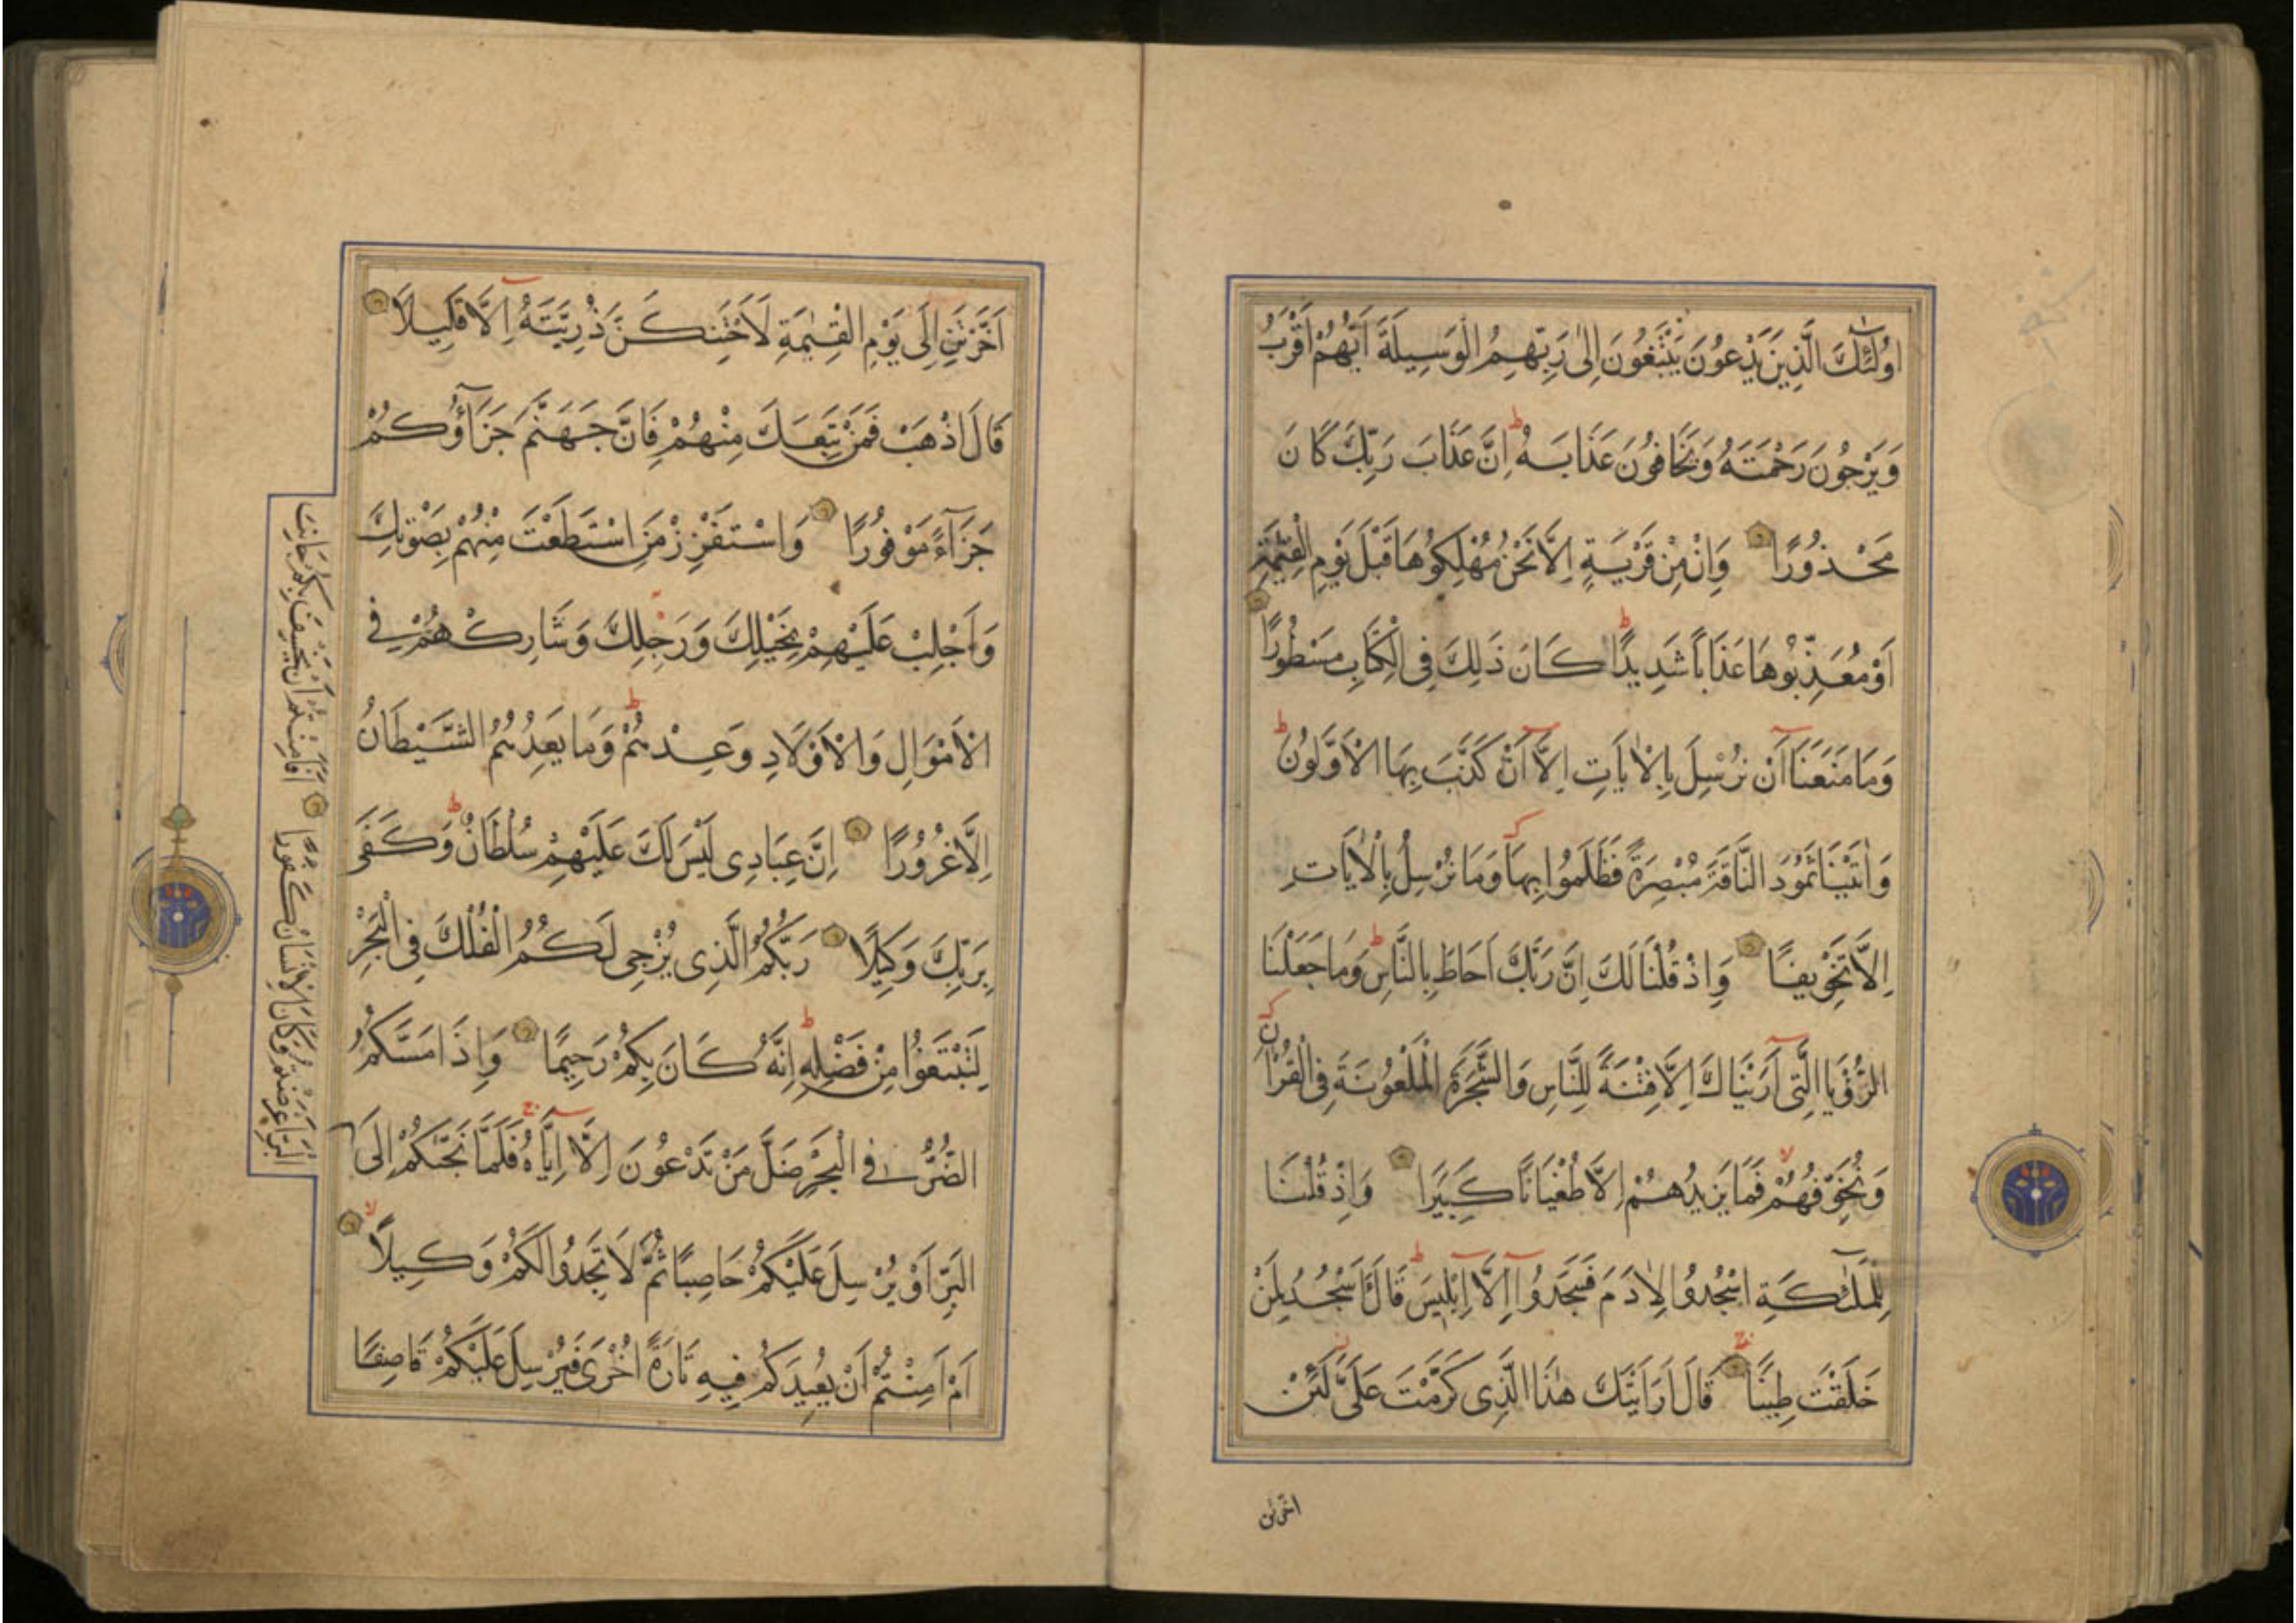 اُولٰٓئِكَ الَّذِينَ يَدْعُونَ يَبْتَغُونَ اِلٰى رَبِّهِمُ الْوَسِيلَةَ اَيُّهُمْ اَقْرَبُ
وَيَرْجُونَ رَحْمَتَهُ وَيَخَافُونَ عَذَابَهُ ط اِنَّ عَذَابَ رَبِّكَ كَانَ
مَحْذُورًا وَاِنْ مِنْ قَرْيَةٍ اِلَّا نَحْنُ مُهْلِكُوهَا قَبْلَ يَوْمِ الْقِيٰمَةِ
اَوْ مُعَذِّبُوهَا عَذَابًا شَدِيدًا ط كَانَ ذَلِكَ فِى الْكِتَابِ مَسْطُورًا
وَمَا مَنَعَنَا اَنْ نُرْسِلَ بِالْاٰيَاتِ اِلَّا اَنْ كَذَّبَ بِهَا الْاَوَّلُونَ ط
وَاٰتَيْنَا ثَمُودَ النَّاقَةَ مُبْصِرَةً فَظَلَمُوا بِهَا وَمَا نُرْسِلُ بِالْاٰيَاتِ
اِلَّا تَخْوِيفًا وَاِذْ قُلْنَا لَكَ اِنَّ رَبَّكَ اَحَاطَ بِالنَّاسِ ط وَمَا جَعَلْنَا
الرُّؤْيَا الَّتِى اَرَيْنَاكَ اِلَّا فِتْنَةً لِلنَّاسِ وَالشَّجَرَةَ الْمَلْعُونَةَ فِى الْقُرْاٰنِ
وَنُخَوِّفُهُمْ لا فَمَا يَزِيدُهُمْ اِلَّا طُغْيَانًا كَبِيرًا وَاِذْ قُلْنَا
لِلْمَلٰٓئِكَةِ اسْجُدُوا لِاٰدَمَ فَسَجَدُوا اِلَّا اِبْلِيسَ ط قَالَ ءَاَسْجُدُ لِمَنْ
خَلَقْتَ طِينًا قَالَ اَرَاَيْتَكَ هٰذَا الَّذِى كَرَّمْتَ عَلَىَّ لَئِنْ
اخرتن
اَخَّرْتَنِ اِلَى يَوْمِ الْقِيٰمَةِ لَاَحْتَنِكَنَّ ذُرِّيَّتَهُ اِلَّا قَلِيلًا
قَالَ اذْهَبْ فَمَنْ تَبِعَكَ مِنْهُمْ فَاِنَّ جَهَنَّمَ جَزَآؤُكُمْ
جَزَآءً مَوْفُورًا وَاسْتَفْزِزْ مَنِ اسْتَطَعْتَ مِنْهُمْ بِصَوْتِكَ
وَاَجْلِبْ عَلَيْهِمْ بِخَيْلِكَ وَرَجِلِكَ وَشَارِكْهُمْ فِى
الْاَمْوَالِ وَالْاَوْلَادِ وَعِدْهُمْ ط وَمَا يَعِدُهُمُ الشَّيْطَانُ
اِلَّا غُرُورًا اِنَّ عِبَادِى لَيْسَ لَكَ عَلَيْهِمْ سُلْطَانٌ ط وَكَفَى
بِرَبِّكَ وَكِيلًا رَبُّكُمُ الَّذِى يُزْجِى لَكُمُ الْفُلْكَ فِى الْبَحْرِ
لِتَبْتَغُوا مِنْ فَضْلِهِ ط اِنَّهُ كَانَ بِكُمْ رَحِيمًا وَاِذَا مَسَّكُمُ
الضُّرُّ فِى الْبَحْرِ ضَلَّ مَنْ تَدْعُونَ اِلَّا اِيَّاهُ فَلَمَّا نَجّٰىكُمْ اِلَى
الْبَرِّ اَعْرَضْتُمْ وَكَانَ الْاِنْسَانُ كَفُورًا اَفَاَمِنْتُمْ اَنْ يَخْسِفَ بِكُمْ جَانِبَ
الْبَرِّ اَوْ يُرْسِلَ عَلَيْكُمْ حَاصِبًا ثُمَّ لَا تَجِدُوا لَكُمْ وَكِيلًا لا
اَمْ اَمِنْتُمْ اَنْ يُعِيدَكُمْ فِيهِ تَارَةً اُخْرَى فَيُرْسِلَ عَلَيْكُمْ قَاصِفًا